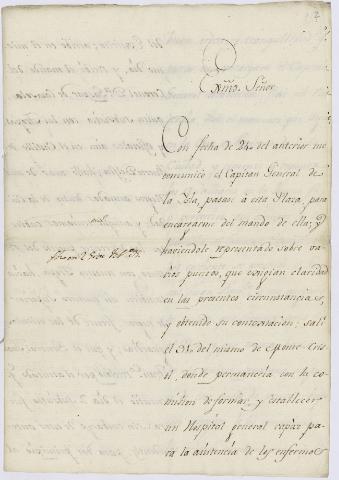 Exmo. Señor.
Con fecha de 24 del anterior me
comunicó el Capitan General de
la Isla, pasase á esta Plaza, para
encargarme del mando de ella; y
haciendole representado sobre va-
rios puntos, que exigian claridad
en las presentes circunstancias,
y obtenido su contestacion; salí
el 31 del mismo de Monte-Cris-
ti, donde permanecia con la co-
mision de formar, y establecer
un Hospital general capaz pa-
ra la asistencia de los enfermos